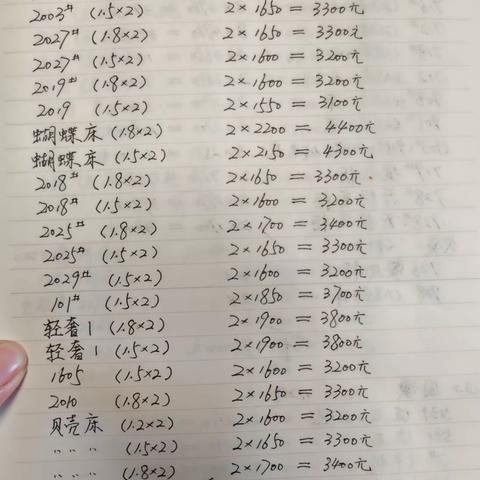 2003# (1.5×2) 2×1650 = 3300元
2027# (1.8×2) 2×1650 = 3300元
2027# (1.5×2) 2×1600 = 3200元
2019# (1.8×2) 2×1600 = 3200元
2019 (1.5×2) 2×1550 = 3100元
蝴蝶床 (1.8×2) 2×2200 = 4400元
蝴蝶床 (1.5×2) 2×2150 = 4300元
2018# (1.8×2) 2×1650 = 3300元
2018# (1.5×2) 2×1600 = 3200元
2025# (1.8×2) 2×1700 = 3400元
2025# (1.5×2) 2×1650 = 3300元
2029# (1.5×2) 2×1600 = 3200元
101# (1.5×2) 2×1850 = 3700元
轻奢1 (1.8×2) 2×1900 = 3800元
轻奢1 (1.5×2) 2×1900 = 3800元
1605 (1.5×2) 2×1600 = 3200元
2010 (1.8×2) 2×1650 = 3300元
贝壳床 (1.2×2) 2×1600 = 3200元
〃 〃 〃 (1.5×2) 2×1650 = 3300元
〃 〃 〃 (1.8×2) 2×1700 = 3400元